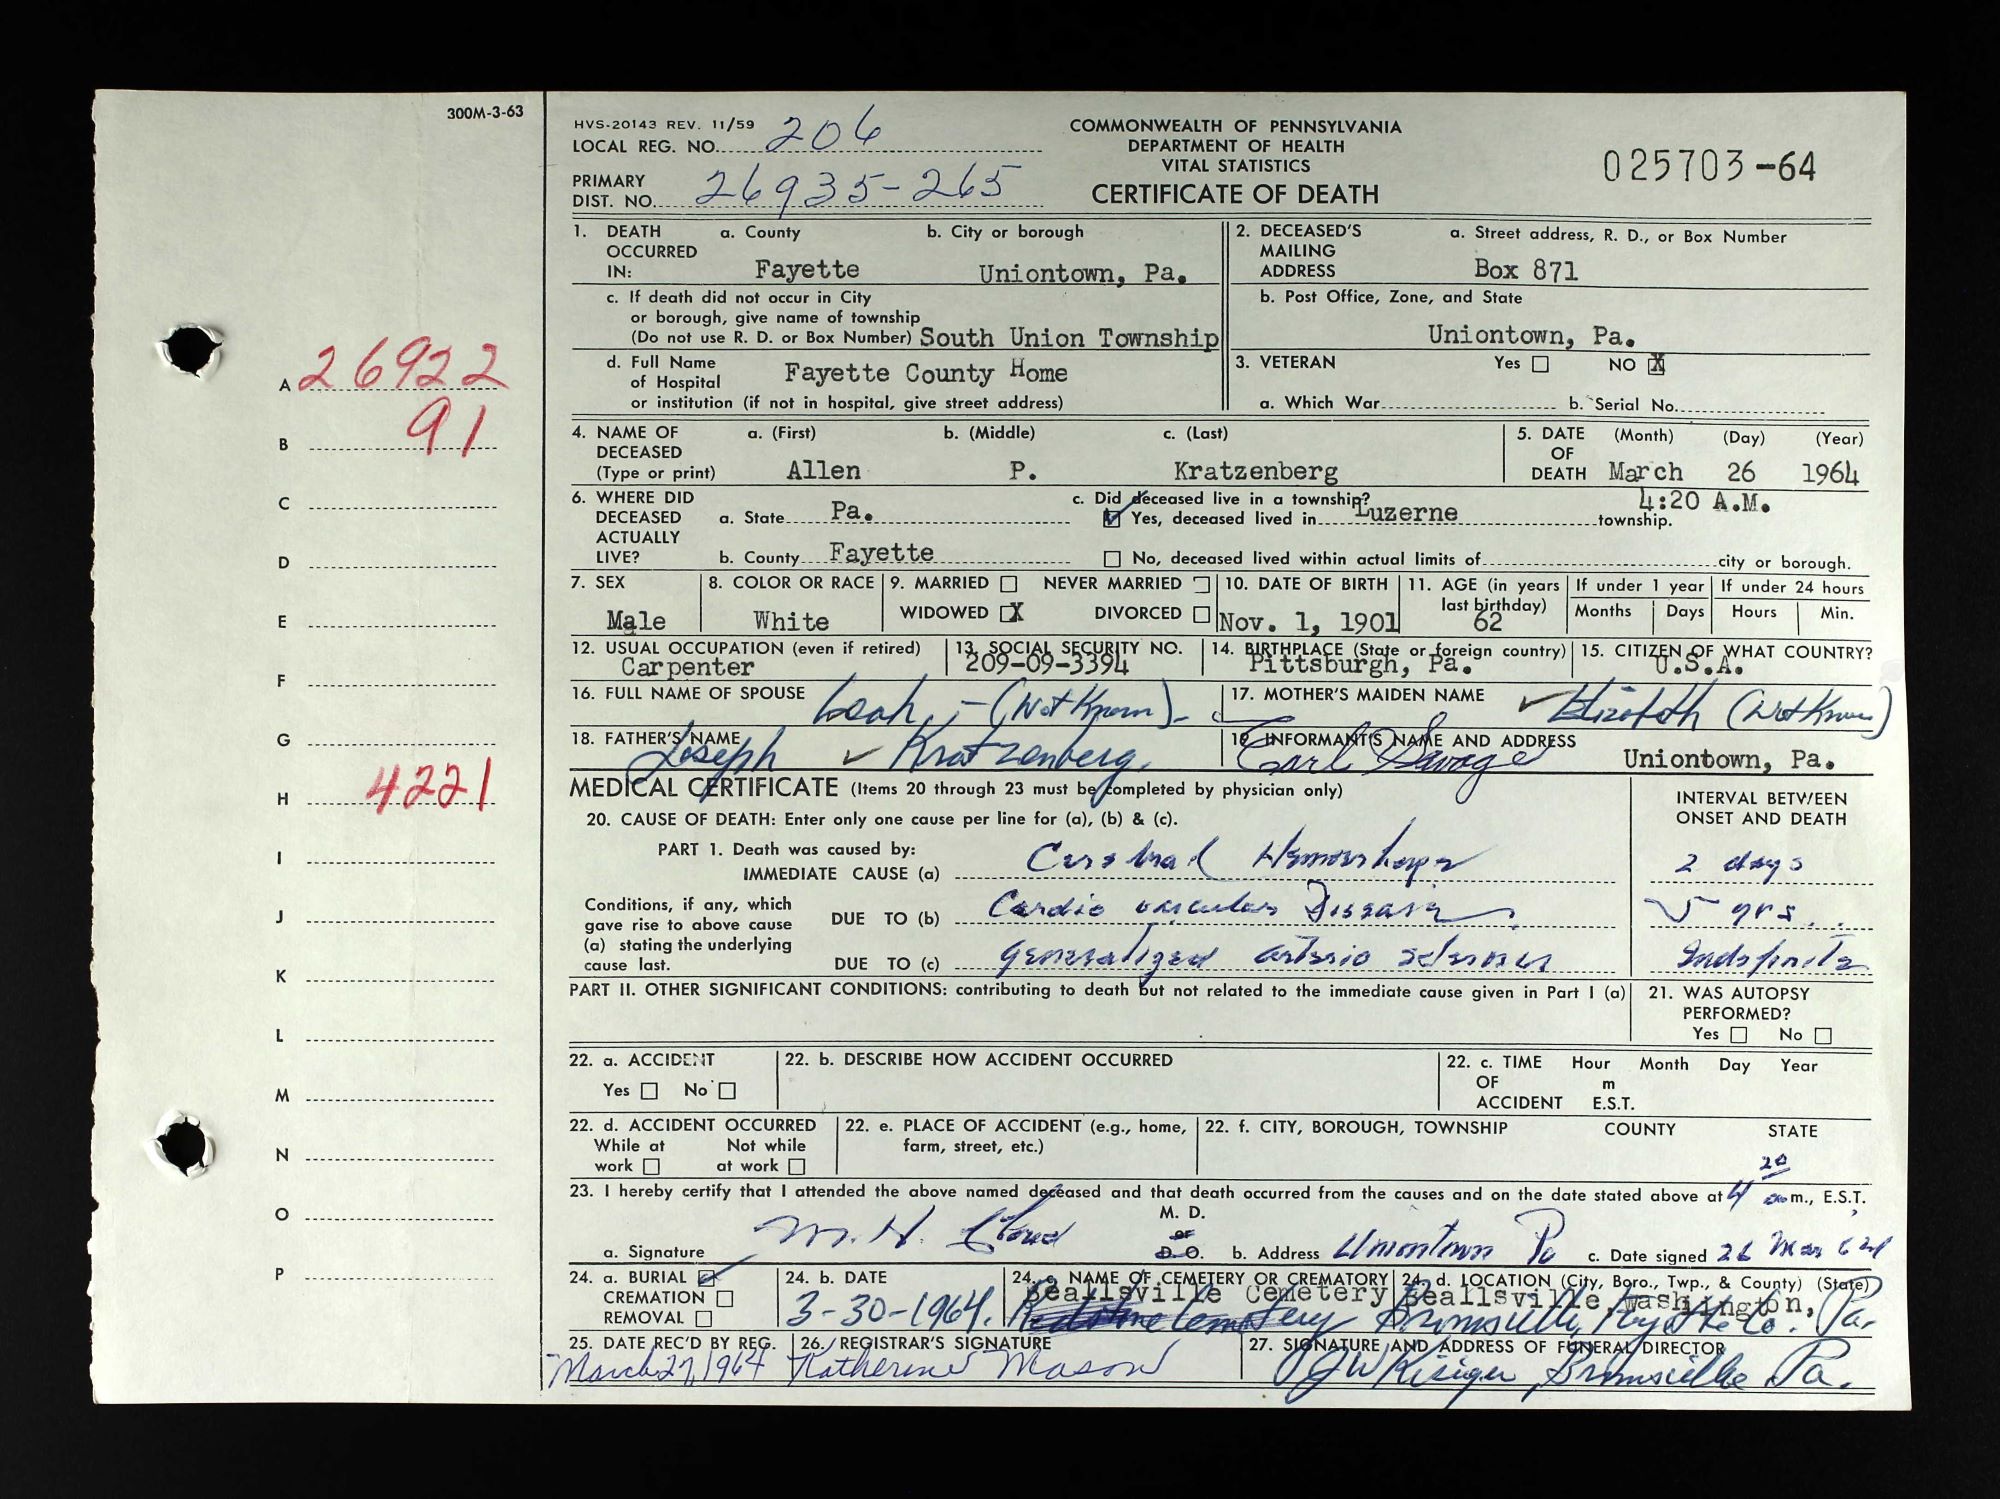 300M-3-63
HVS-20143 REV. 11/59
LOCAL REG. NO. 206
PRIMARY
DIST. NO. 26935-265
COMMONWEALTH OF PENNSYLVANIA
DEPARTMENT OF HEALTH
VITAL STATISTICS
CERTIFICATE OF DEATH
025703-64
1. DEATH OCCURRED IN: a. County Fayette b. City or borough Uniontown, Pa.
c. If death did not occur in City
or borough, give name of township
(Do not use R. D. or Box Number) South Union Township
d. Full Name of Hospital Fayette County Home
or institution (if not in hospital, give street address)
2. DECEASED'S MAILING ADDRESS a. Street address, R. D., or Box Number
Box 871
b. Post Office, Zone, and State
Uniontown, Pa.
3. VETERAN Yes NO X
a. Which War b. Serial No.
4. NAME OF DECEASED (Type or print) a. (First) Allen b. (Middle) P. c. (Last) Kratzenberg
5. DATE OF DEATH (Month) March (Day) 26 (Year) 1964
4:20 A.M.
6. WHERE DID DECEASED ACTUALLY LIVE? a. State Pa.
b. County Fayette
c. Did deceased live in a township?
Yes, deceased lived in Luzerne township.
No, deceased lived within actual limits of city or borough.
7. SEX Male
8. COLOR OR RACE White
9. MARRIED NEVER MARRIED
WIDOWED X DIVORCED
10. DATE OF BIRTH Nov. 1, 1901
11. AGE (in years last birthday) 62
If under 1 year Months Days
If under 24 hours Hours Min.
12. USUAL OCCUPATION (even if retired) Carpenter
13. SOCIAL SECURITY NO. 209-09-3394
14. BIRTHPLACE (State or foreign country) Pittsburgh, Pa.
15. CITIZEN OF WHAT COUNTRY? U.S.A.
16. FULL NAME OF SPOUSE Leah - (Not Known)
17. MOTHER'S MAIDEN NAME Elizabeth (Not Known)
18. FATHER'S NAME Joseph Kratzenberg
19. INFORMANT'S NAME AND ADDRESS Earl Savage Uniontown, Pa.
MEDICAL CERTIFICATE (Items 20 through 23 must be completed by physician only)
INTERVAL BETWEEN ONSET AND DEATH
20. CAUSE OF DEATH: Enter only one cause per line for (a), (b) & (c).
PART 1. Death was caused by:
IMMEDIATE CAUSE (a) Cerebral Hemorrhage 2 days
Conditions, if any, which
gave rise to above cause
(a) stating the underlying
cause last.
DUE TO (b) Cardio vascular Disease 5 yrs.
DUE TO (c) generalized arterio sclerosis Indefinite
PART II. OTHER SIGNIFICANT CONDITIONS: contributing to death but not related to the immediate cause given in Part I (a)
21. WAS AUTOPSY PERFORMED?
Yes No
22. a. ACCIDENT
Yes No
22. b. DESCRIBE HOW ACCIDENT OCCURRED
22. c. TIME OF ACCIDENT Hour Month Day Year
m
E.S.T.
22. d. ACCIDENT OCCURRED
While at work Not while at work
22. e. PLACE OF ACCIDENT (e.g., home, farm, street, etc.)
22. f. CITY, BOROUGH, TOWNSHIP COUNTY STATE
23. I hereby certify that I attended the above named deceased and that death occurred from the causes and on the date stated above at 4 20 am., E.S.T.
a. Signature M. H. Cloud M. D. or D. O. b. Address Uniontown Pa c. Date signed 26 Mar 64
24. a. BURIAL
CREMATION
REMOVAL
24. b. DATE 3-30-1964.
24. c. NAME OF CEMETERY OR CREMATORY Beallsville Cemetery
Redstone Cemetery
24. d. LOCATION (City, Boro., Twp., & County) (State) Beallsville, Washington,
Brownsville, Fayette Co. Pa.
25. DATE REC'D BY REG. March 27, 1964
26. REGISTRAR'S SIGNATURE Katherine Mason
27. SIGNATURE AND ADDRESS OF FUNERAL DIRECTOR
Brownsville Pa.
A 26922
B 91
C
D
E
F
G
H 4221
I
J
K
L
M
N
O
P